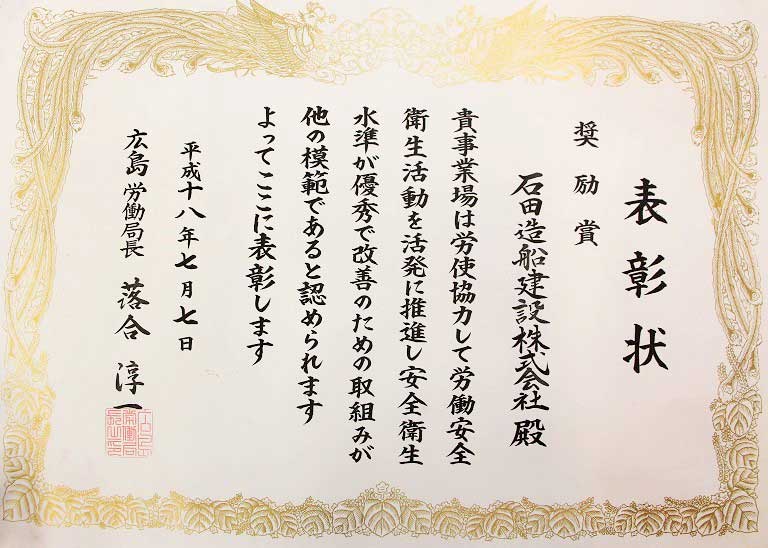 表彰状
奨励賞
石田造船建設株式会社 殿
貴事業場は労使協力して労働安全
衛生活動を活発に推進し安全衛生
水準が優秀で改善のための取組みが
他の模範であると認められます
よってここに表彰します
平成十八年七月七日
広島労働局長 落合 淳一